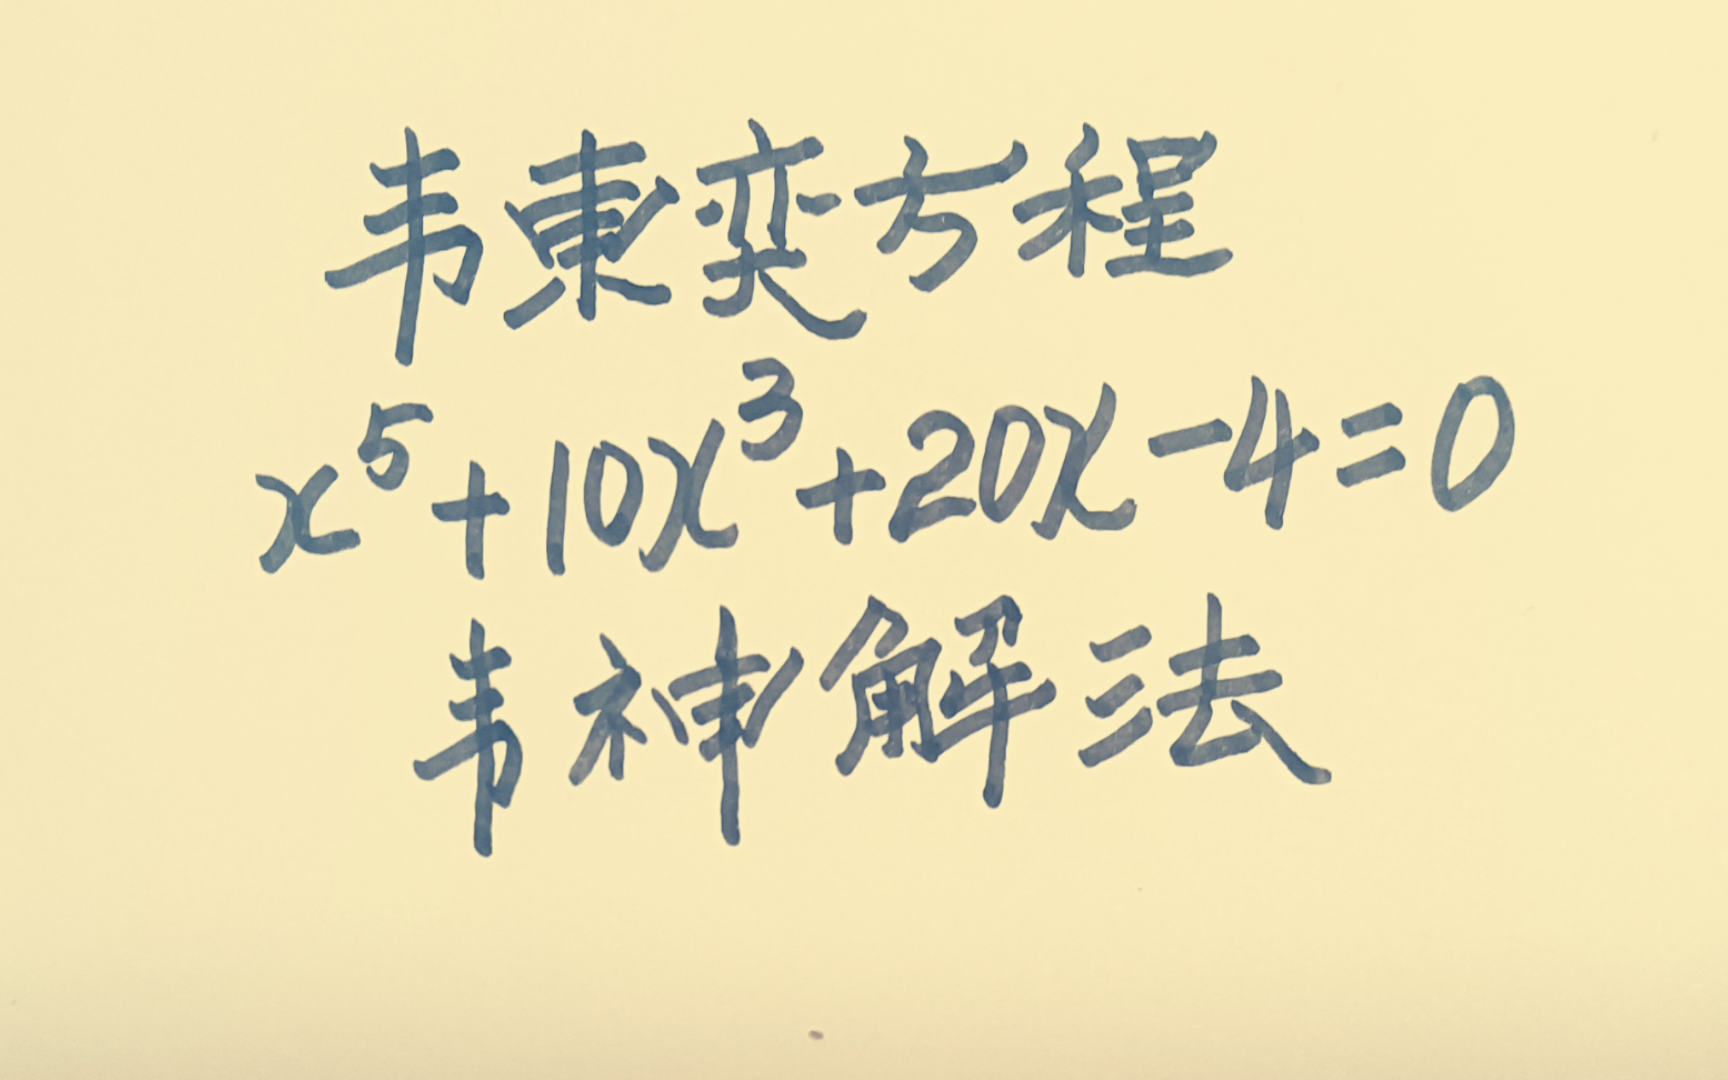 韦東奕方程
x⁵+10x³+20x-4=0
韦神解法